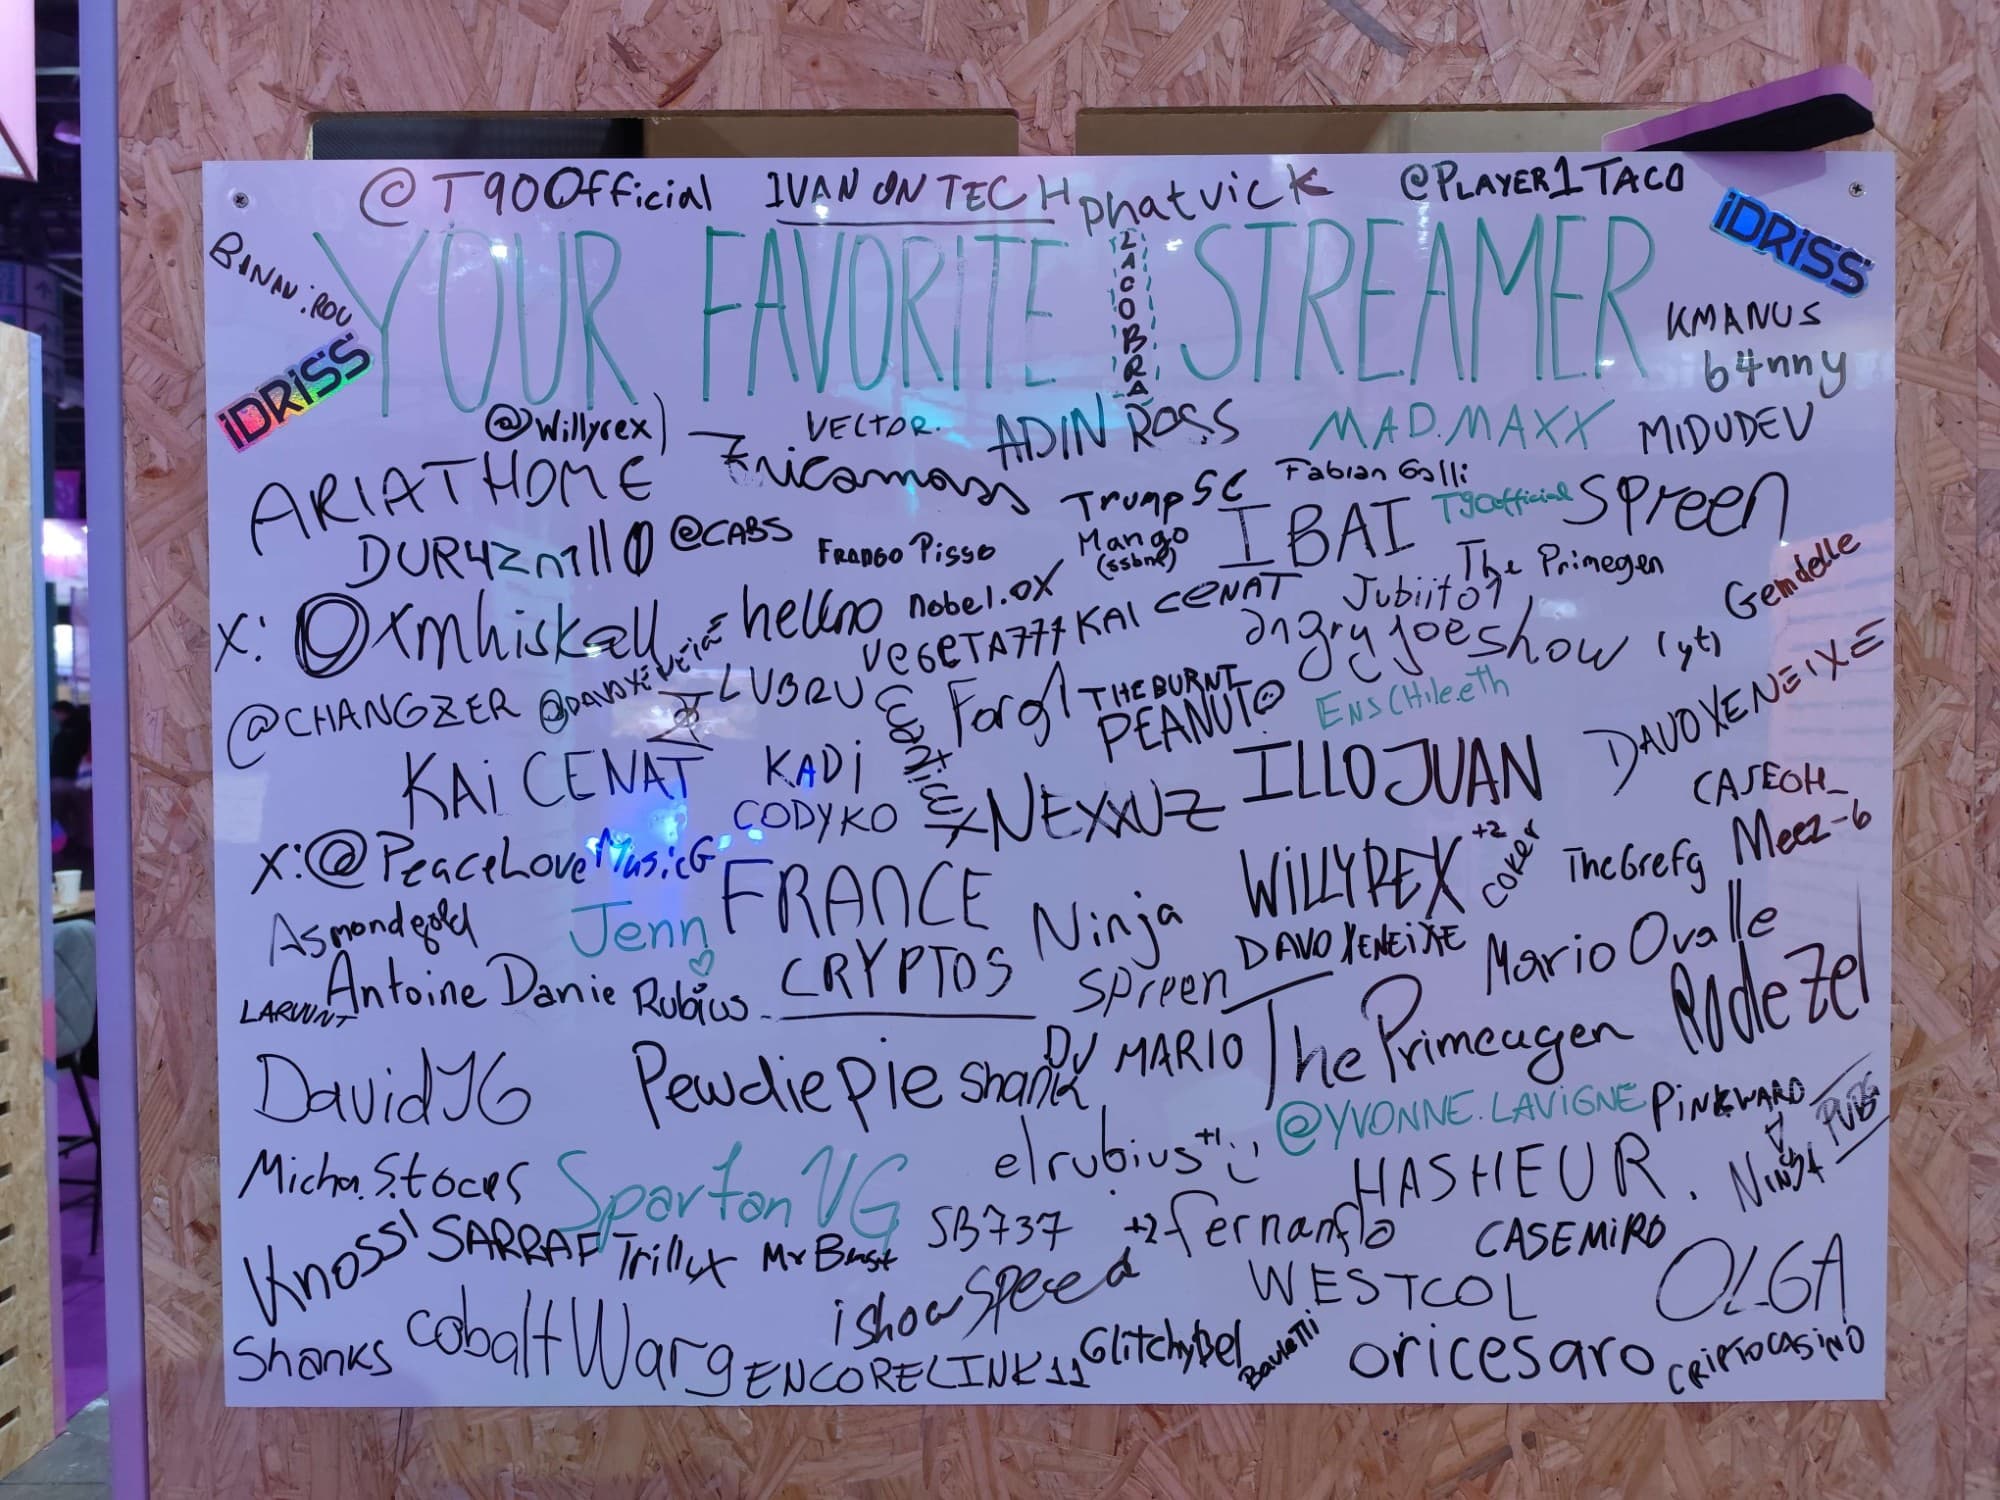 @T90Official IVAN ON TECH phatvick @PLAYER1TACO
iDRiSS
YOUR FAVORITE STREAMER
LACOBRA
iDRiSS
KMANUS
b4nny
@Willyrex
VECTOR.
ADIN ROSS
MAD.MAXX
MIDUDEV
ARIATHOME
Trump SC
Fabian Galli
IBAI
T90official
Spreen
@CABS
Mango
The Primegen
hellno
nobel.ox
KAI CENAT
Gemdelle
X: @xmhiskall
VEGETA777
angryjoeshow (yt)
@CHANGZER
LUBRU
THE BURNT
PEANUT
ENSCHILE.eth
DAVOXENEIXE
KAi CENAT
KADi
CODYKO
NEXXUZ
ILLOJUAN
CASEOH_
X:@PeaceLoveMusicG
FRANCE
CRYPTOS
WILLYREX +2
COKER
TheGrefg
Meez-6
Asmondgold
Jenn
Ninja
DAVOXENEIXE
Mario Ovalle
LARUUNT
Antoine Danie
Rubius
Spreen
DavidJG
PewdiePie
Shank
DJ MARIO
The Primeagen
@YVONNE.LAVIGNE
PINKWARD
PUBG
elrubius +1
HASHEUR.
NINJA
SpartanVG
Knossi
SARRAF
Trillux
Mr Beast
SB737
+2 fernanflo
CASEMIRO
OLGA
ishowspeed
WESTCOL
Shanks
cobaltWarg
ENCORELINK11
GlitchyBel
oricesaro
CRIPTOCASINO